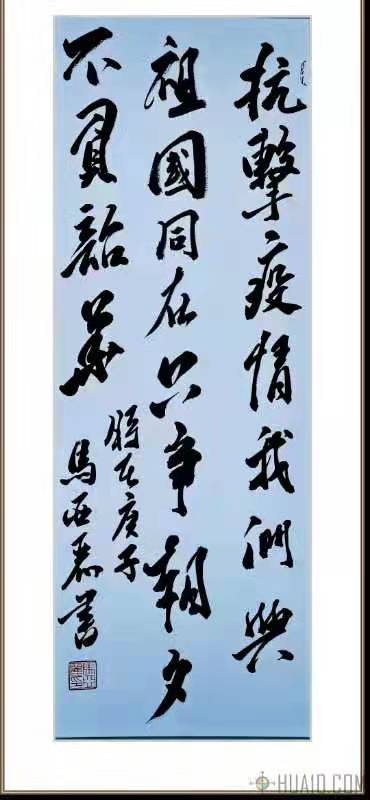 抗擊疫情我們與
祖國同在只争朝夕
不負韶華
時在庚子
馬亞磊書
HUA10.COM